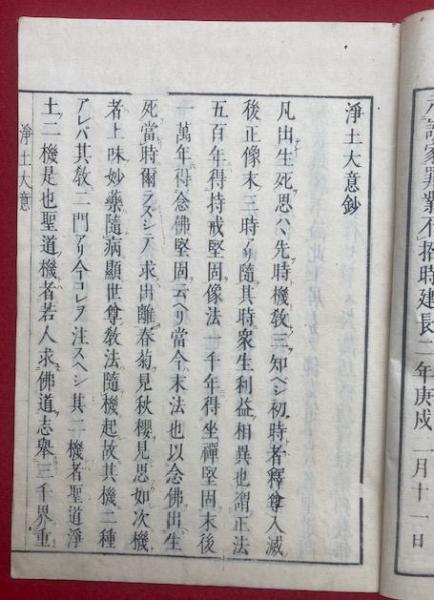 元詣家異義不招時建長二年庚戌一月十一日
淨土大意鈔
凡出生死思ハヽ先時機敎三知ベシ初時者釋尊入滅
後正像末三時アリ隨其時衆生利益相異也謂正法
五百年得持戒堅固像法一千年得坐禪堅固末後
一萬年得念佛堅固云ヘリ當今末法也以念佛出生
死當時爾ラズシテ求出離春菊見秋櫻見思如次機
者上味妙藥隨病顯世尊敎法隨機起故其機二種
アレバ其敎二門アリ今コレヲ注スヘシ其二機者聖道淨
土二機是也聖道機者若人求佛道志擧三千界重
淨土大意